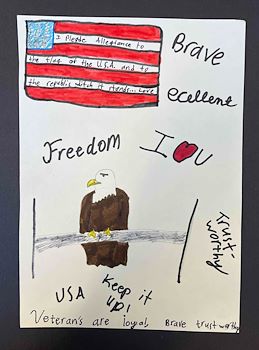 I Pledge Allegiance to
the flag of the U.S.A. and to
the republic witch it stands...
Brave
ecellent
Freedom
I ❤ U
trust
worthy
USA
Keep it
up!
Veteran's are loyal, Brave trust worthy